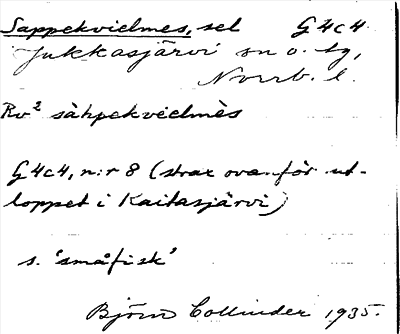 Sappekvielmes, sel G4c4
Jukkasjärvi sn o. tg,
Norrb. l.
Rv² sàhpekvielmès
G4c4, n:r 8 (strax ovanför ut-
loppet i Kaitasjärvi)
s. 'småfisk'
Björn Collinder 1935.